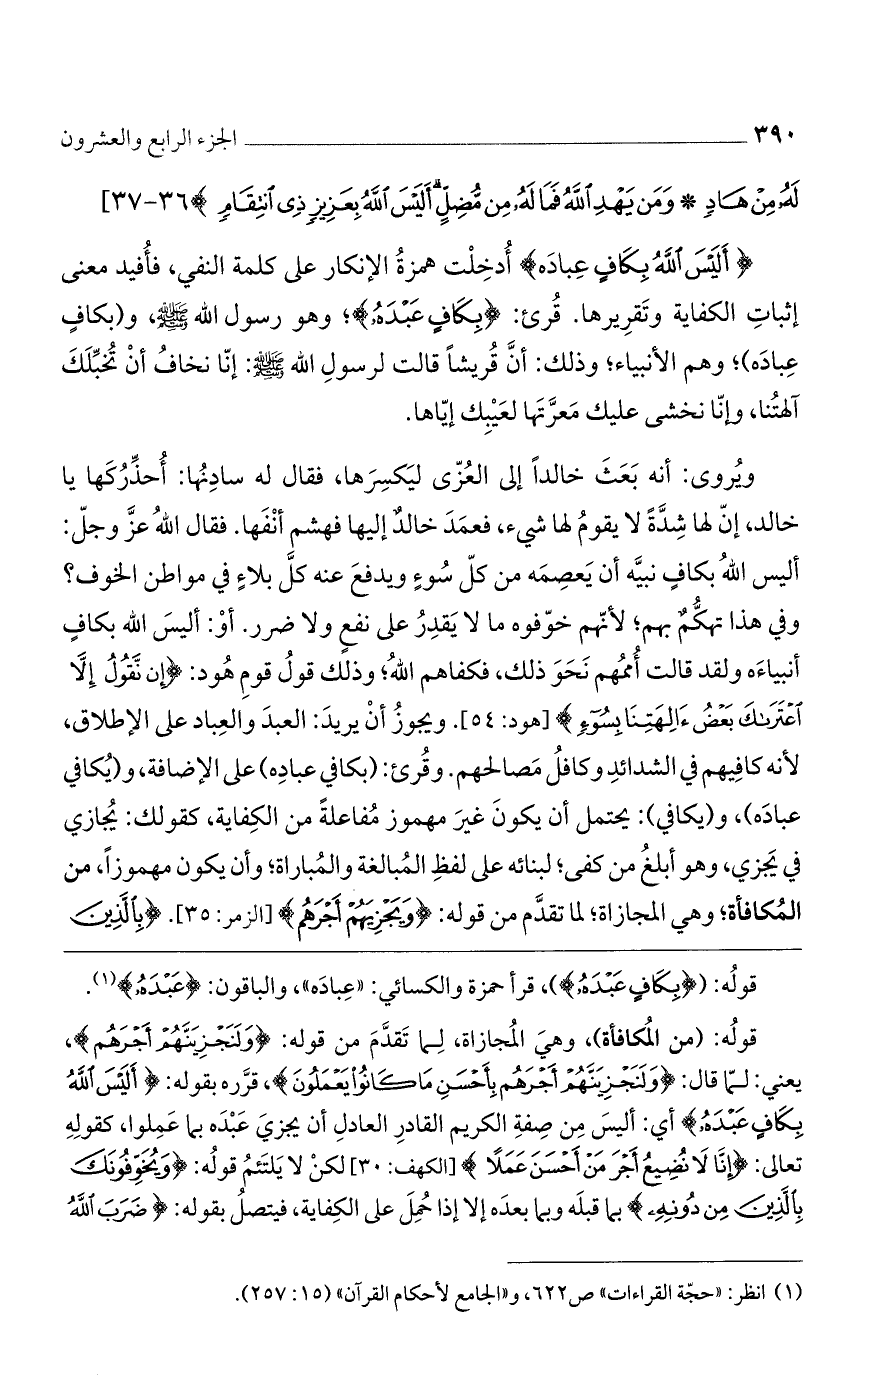 ٣٩٠ الجزء الرابع والعشرون
لَهُۥ مِنْ هَادٍ * وَمَن يَهْدِ ٱللَّهُ فَمَا لَهُۥ مِن مُّضِلٍّ ۗ أَلَيْسَ ٱللَّهُ بِعَزِيزٍ ذِى ٱنتِقَامٍ ﴾ ٣٦-٣٧]
﴿ أَلَيْسَ ٱللَّهُ بِكَافٍ عِبادَه﴾ أُدخِلْت همزةُ الإنكار على كلمة النفي، فأُفيد معنى
إثباتِ الكفاية وتَقرِيرها. قُرئ: ﴿بِكَافٍ عَبْدَهُۥ﴾؛ وهو رسول الله ﷺ، و(بكافٍ
عِبادَه)؛ وهم الأنبياء؛ وذلك: أنَّ قُريشاً قالت لرسولِ الله ﷺ: إنّا نخافُ أنْ تُخبِّلَكَ
آلهتُنا، وإنّا نخشى عليك مَعرَّتَها لعَيْبِك إيّاها.
ويُروى: أنه بَعَثَ خالداً إلى العُزّى ليَكسِرَها، فقال له سادِنُها: أُحذِّرُكَها يا
خالد، إنّ لها شِدَّةً لا يقومُ لها شيء، فعمَدَ خالدٌ إليها فهشم أنْفَها. فقال اللهُ عزَّ وجلّ:
أليس اللهُ بكافٍ نبيَّه أن يَعصِمَه من كلّ سُوءٍ ويدفعَ عنه كلَّ بلاءٍ في مواطن الخوف؟
وفي هذا تهكُّمٌ بهم؛ لأنّهم خوّفوه ما لا يَقدِرُ على نفعٍ ولا ضرر. أوْ: أليسَ الله بكافٍ
أنبياءَه ولقد قالت أممُهم نَحَوَ ذلك، فكفاهم اللهُ؛ وذلك قولُ قومِ هُود: ﴿إِن نَّقُولُ إِلَّا
ٱعْتَرَىٰكَ بَعْضُ ءَالِهَتِنَا بِسُوٓءٍ ﴾ [هود: ٥٤]. ويجوزُ أنْ يريدَ: العبدَ والعِبادَ على الإطلاق،
لأنه كافِيهم في الشدائدِ وكافلُ مَصالحهم. وقُرئ: (بكافي عبادِه) على الإضافة، و(يُكافي
عبادَه)، و(يكافي): يحتمل أن يكونَ غيرَ مهموز مُفاعلةً من الكِفاية، كقولك: يُجازي
في يَجزي، وهو أبلغُ من كفى؛ لبنائه على لفظِ المُبالغة والمُباراة؛ وأن يكون مهموزاً، من
المُكافأة؛ وهي المجازاة؛ لما تقدَّم من قوله: ﴿وَيَجْزِيَهُمْ أَجْرَهُم﴾ [الزمر: ٣٥]. ﴿بِالَّذِينَ
قولُه: (﴿بِكَافٍ عَبْدَهُۥ﴾)، قرأ حمزة والكسائي: «عِبادَه»، والباقون: ﴿عَبْدَهُۥ﴾(١).
قولُه: (من المُكافأة)، وهيَ المُجازاة، لِما تَقدَّمَ من قوله: ﴿وَلَنَجْزِيَنَّهُمْ أَجْرَهُم﴾،
يعني: لـمّا قال: ﴿وَلَنَجْزِيَنَّهُمْ أَجْرَهُم بِأَحْسَنِ مَا كَانُوا۟ يَعْمَلُونَ﴾، قرَّره بقوله: ﴿ أَلَيْسَ ٱللَّهُ
بِكَافٍ عَبْدَهُۥ﴾ أي: أليسَ مِن صِفةِ الكريم القادرِ العادلِ أن يجزيَ عَبْدَه بما عَمِلوا، كقولِهِ
تعالى: ﴿إِنَّا لَا نُضِيعُ أَجْرَ مَنْ أَحْسَنَ عَمَلًا ﴾ [الكهف: ٣٠] لكنْ لا يَلتَئمُ قولُه: ﴿وَيُخَوِّفُونَكَ
بِالَّذِينَ مِن دُونِهِۦ ﴾ بما قبلَه وبما بعدَه إلا إذا حُمِلَ على الكِفاية، فيتصلُ بقوله: ﴿ ضَرَبَ ٱللَّهُ
(١) انظر: «حجّة القراءات» ص٦٢٢، و«الجامع لأحكام القرآن» (١٥: ٢٥٧).